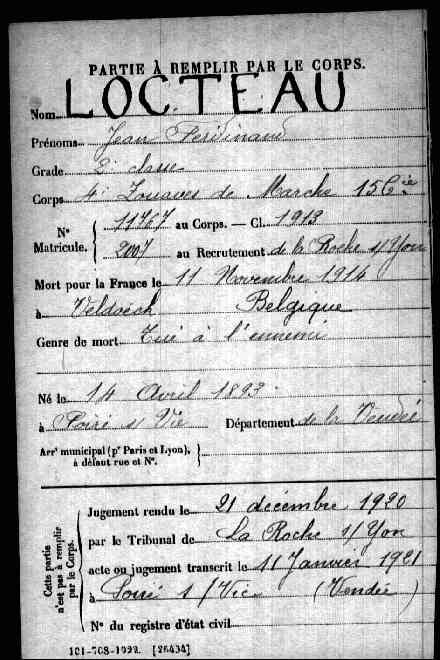 PARTIE À REMPLIR PAR LE CORPS.
Nom LOCTEAU
Prénoms Jean Ferdinand
Grade 2e classe
Corps 4e Zouaves de Marche 15 Cie
N° Matricule. 11767 au Corps. — Cl. 1913
2007 au Recrutement de la Roche s/Yon
Mort pour la France le 11 Novembre 1914
à Veldoëch Belgique
Genre de mort Tué à l'ennemi
Né le 14 Avril 1893
à Poiré s/ Vie Département de la Vendée
Arrt municipal (pr Paris et Lyon),
à défaut rue et N°.
Cette partie n'est pas à remplir par le Corps.
Jugement rendu le 21 décembre 1920
par le Tribunal de La Roche s/ Yon
acte ou jugement transcrit le 11 Janvier 1921
à Poiré s/Vie (Vendée)
N° du registre d'état civil
101-708-1922. [26434]